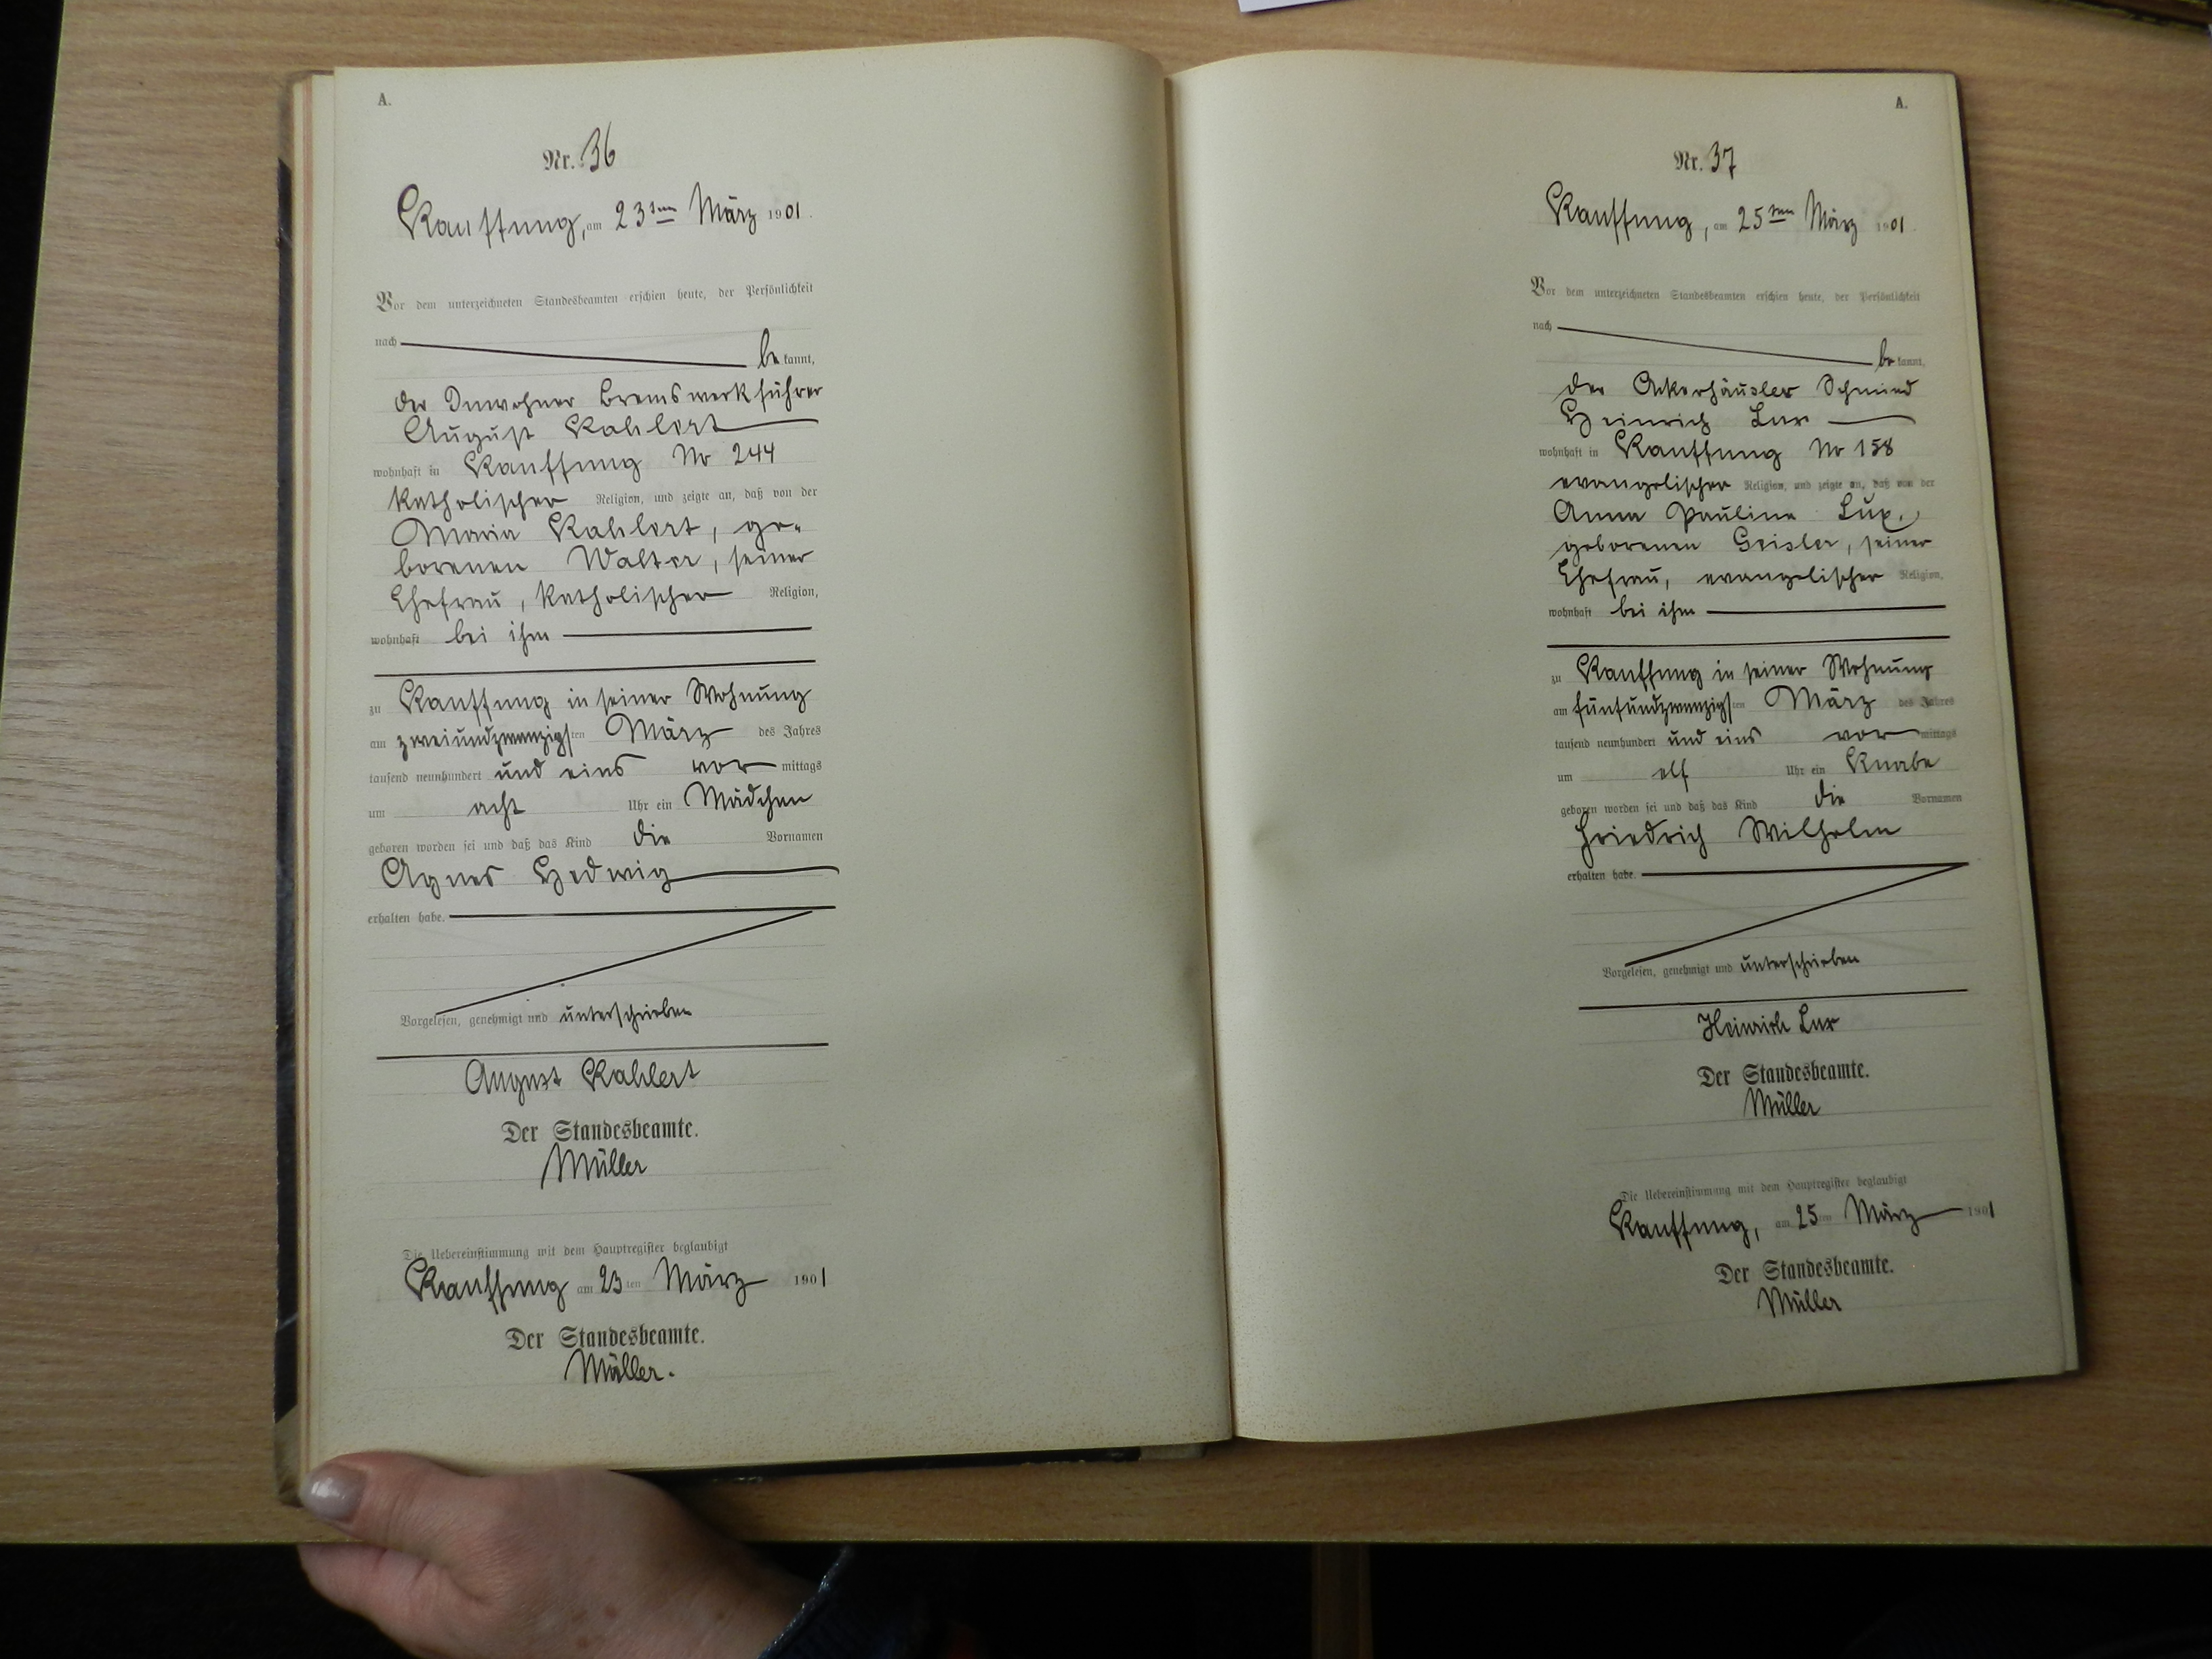 A.
Nr. 36
Kauffung, am 23ten März 1901.
Vor dem unterzeichneten Standesbeamten erschien heute, der Persönlichkeit
nach
bekannt,
der Inwohner Bremswerkführer
August Kahlert
wohnhaft in Kauffung No 244
katholischer Religion, und zeigte an, daß von der
Maria Kahlert, ge-
borenen Walter, seiner
Ehefrau, katholischer Religion,
wohnhaft bei ihm
zu Kauffung in seiner Wohnung
am zweiundzwanzigsten März des Jahres
tausend neunhundert und eins vormittags
um acht Uhr ein Mädchen
geboren worden sei und daß das Kind die Vornamen
Agnes Hedwig
erhalten habe.
Vorgelesen, genehmigt und unterschrieben
August Kahlert
Der Standesbeamte.
Müller
Die Uebereinstimmung mit dem Hauptregister beglaubigt
Kauffung am 23ten März 1901
Der Standesbeamte.
Müller.
A.
Nr. 37
Kauffung, am 25ten März 1901.
Vor dem unterzeichneten Standesbeamten erschien heute, der Persönlichkeit
nach
bekannt,
der Ackerhäusler Schmied
Heinrich Lux
wohnhaft in Kauffung No 158
evangelischer Religion, und zeigte an, daß von der
Anna Pauline Lux,
geborenen Geisler, seiner
Ehefrau, evangelischer Religion,
wohnhaft bei ihm
zu Kauffung in seiner Wohnung
am fünfundzwanzigsten März des Jahres
tausend neunhundert und eins vormittags
um elf Uhr ein Knabe
geboren worden sei und daß das Kind die Vornamen
Friedrich Wilhelm
erhalten habe.
Vorgelesen, genehmigt und unterschrieben
Heinrich Lux
Der Standesbeamte.
Müller
Die Uebereinstimmung mit dem Hauptregister beglaubigt
Kauffung, am 25ten März 1901
Der Standesbeamte.
Müller